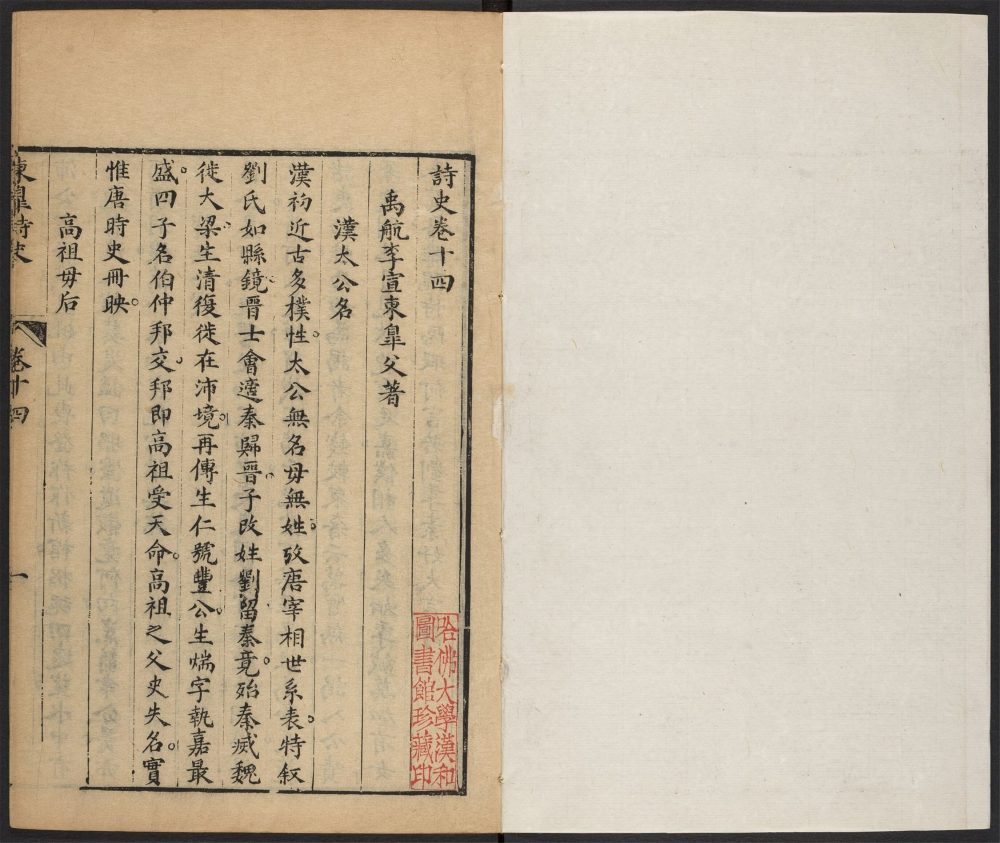 詩史卷十四
禹航李宣東臯父著
漢太公名
漢初近古多樸性。太公無名母無姓。攷唐宰相世系表。特叙
劉氏如縣鏡。晉士會適秦歸晉。子改姓劉留秦竟。殆秦烕魏
徙大梁。生清復徙在沛境。再傳生仁號豐公。生煓字執嘉最
盛。四子名伯仲邦交。邦即高祖受天命。高祖之父史失名。實
惟唐時史冊映。
高祖母后
東臯詩史
卷十四
一
哈佛大學漢和
圖書館珍藏印